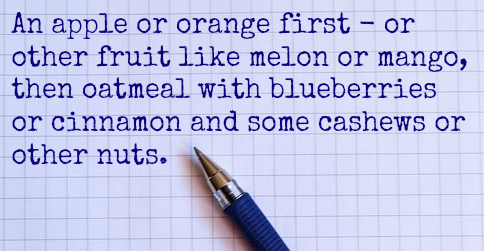 An apple or orange first – or
other fruit like melon or mango,
then oatmeal with blueberries
or cinnamon and some cashews or
other nuts.